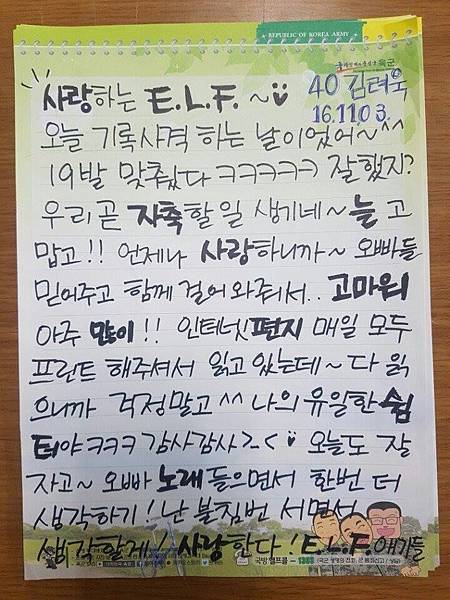 REPUBLIC OF KOREA ARMY
육군
40 김려욱
16.11.03.
사랑하는 E.L.F. ~
오늘 기록사격 하는 날이었어~^^
19발 맞췄다 ㅋㅋㅋㅋㅋ 잘했지?
우리곧 자축할 일 생기네~ 늘 고
맙고!! 언제나 사랑하니까~ 오빠들
믿어주고 함께 걸어와줘서.. 고마워
아주 많이!! 인터넷편지 매일 모두
프린트 해주셔서 읽고있는데~ 다 읽
으니까 걱정말고^^ 나의 유일한 쉼
터야ㅋㅋㅋ 감사감사>_< 오늘도 잘
자고~ 오빠 노래들으면서 한번 더
생각하기! 난 불침번 서면서
생각할게! 사랑한다! E.L.F.애기들
국방헬프콜 - 1303